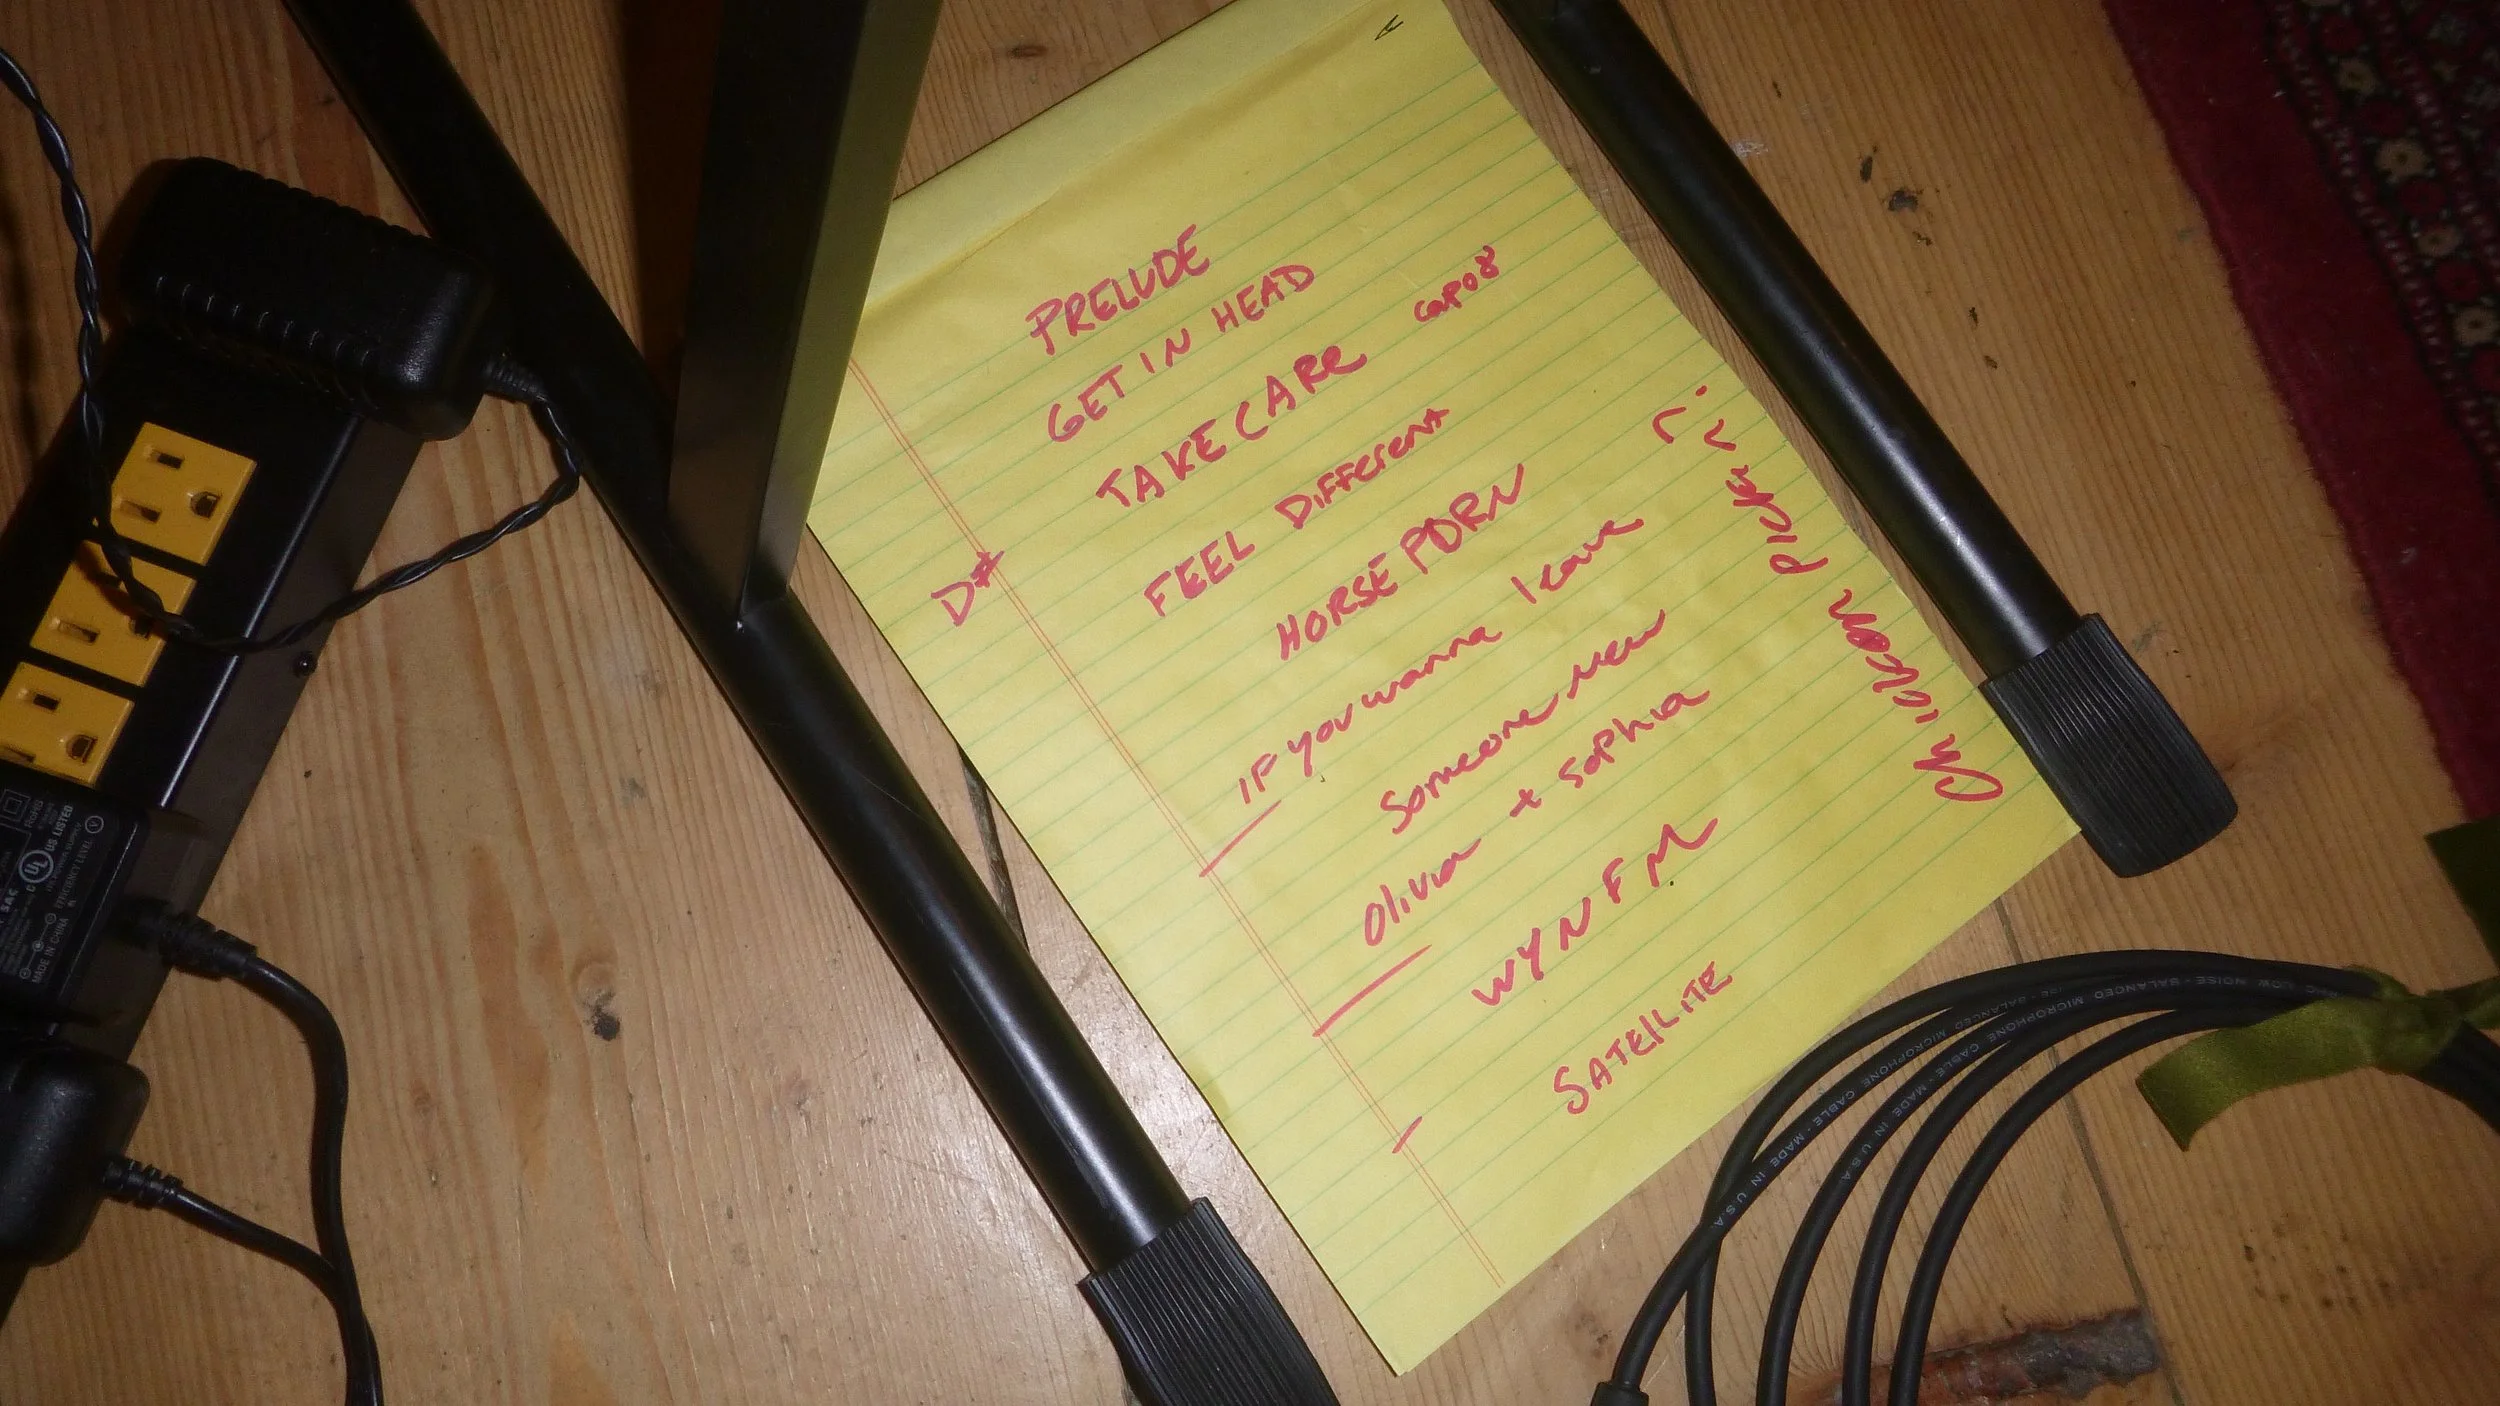 PRELUDE
GET IN HEAD
TAKE CARE capo 8
D# FEEL DIFFERENT
HORSE PORN
IF you wanna leave
Someone new
Olivia + Sophia
WYNFM
SATELLITE
Chicken Pickens
US LISTED
EFFICIENCY LEVEL V
MADE IN CHINA
RoHS
UL
LOW NOISE - BALANCED MICROPHONE CABLE - MADE IN U.S.A
BALANCED MICROPHONE CABLE - MADE IN U.S.A
MICROPHONE CABLE - MADE IN U.S.A